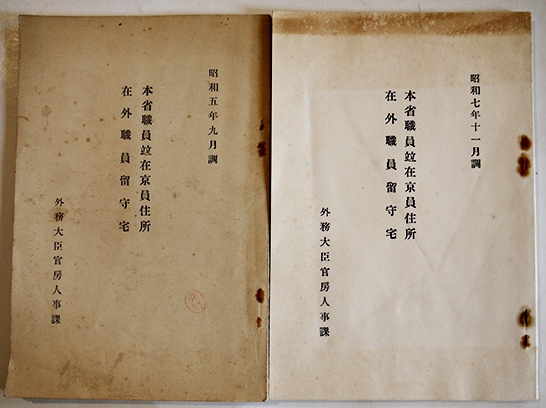 昭和五年九月調
本省職員竝在京員住所
在外職員留守宅
外務大臣官房人事課
昭和七年十一月調
本省職員竝在京員住所
在外職員留守宅
外務大臣官房人事課